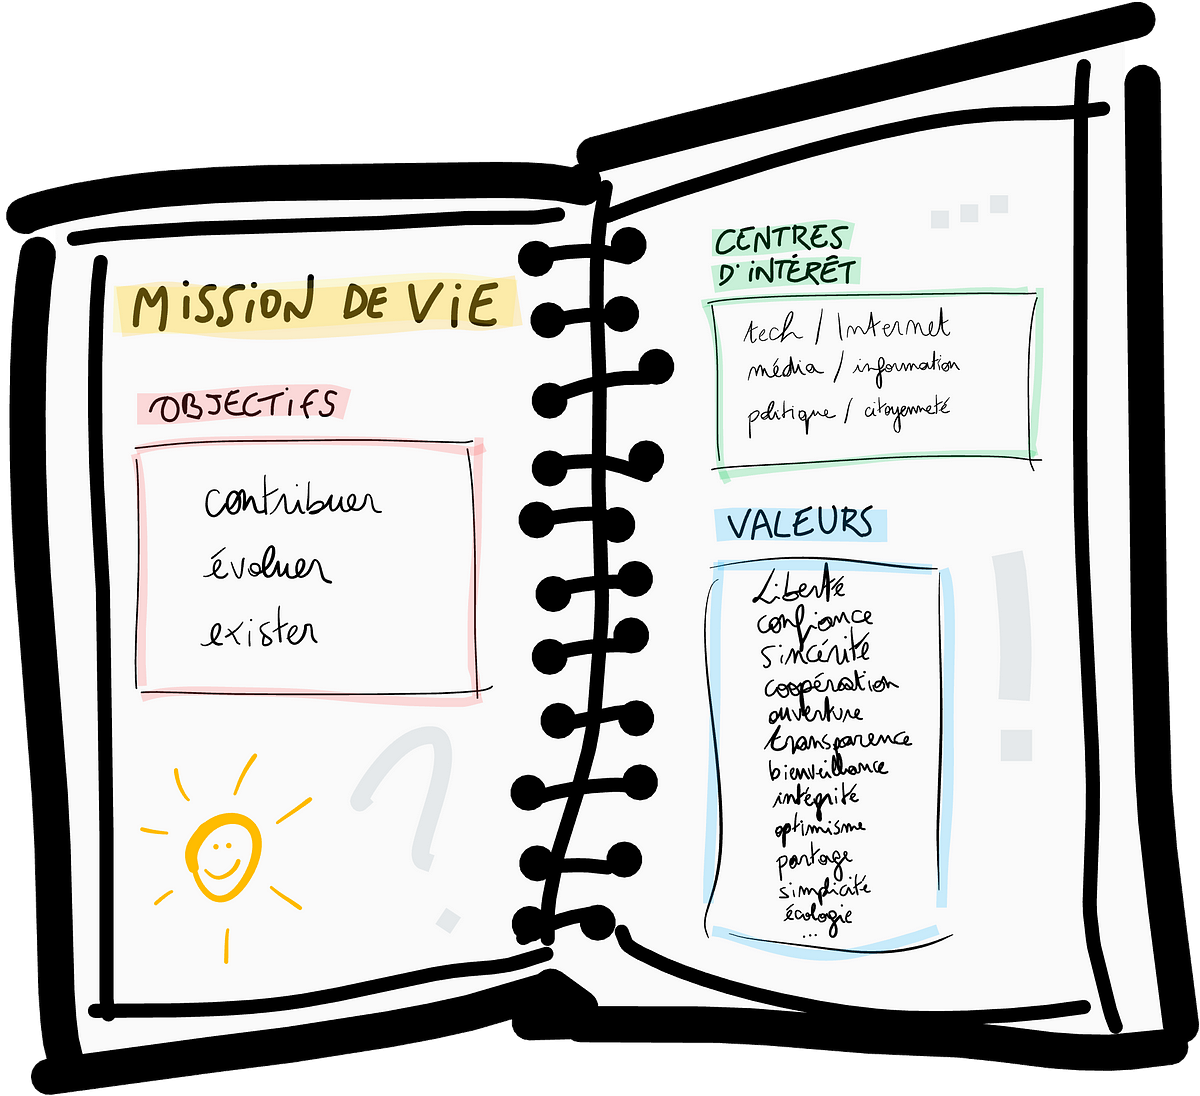 MISSION DE VIE
OBJECTIFS
contribuer
évoluer
exister
?
CENTRES
D'INTÉRÊT
tech / Internet
média / information
politique / citoyenneté
VALEURS
Liberté
confiance
sincérité
coopération
ouverture
transparence
bienveillance
intégrité
optimisme
partage
simplicité
écologie
...
!